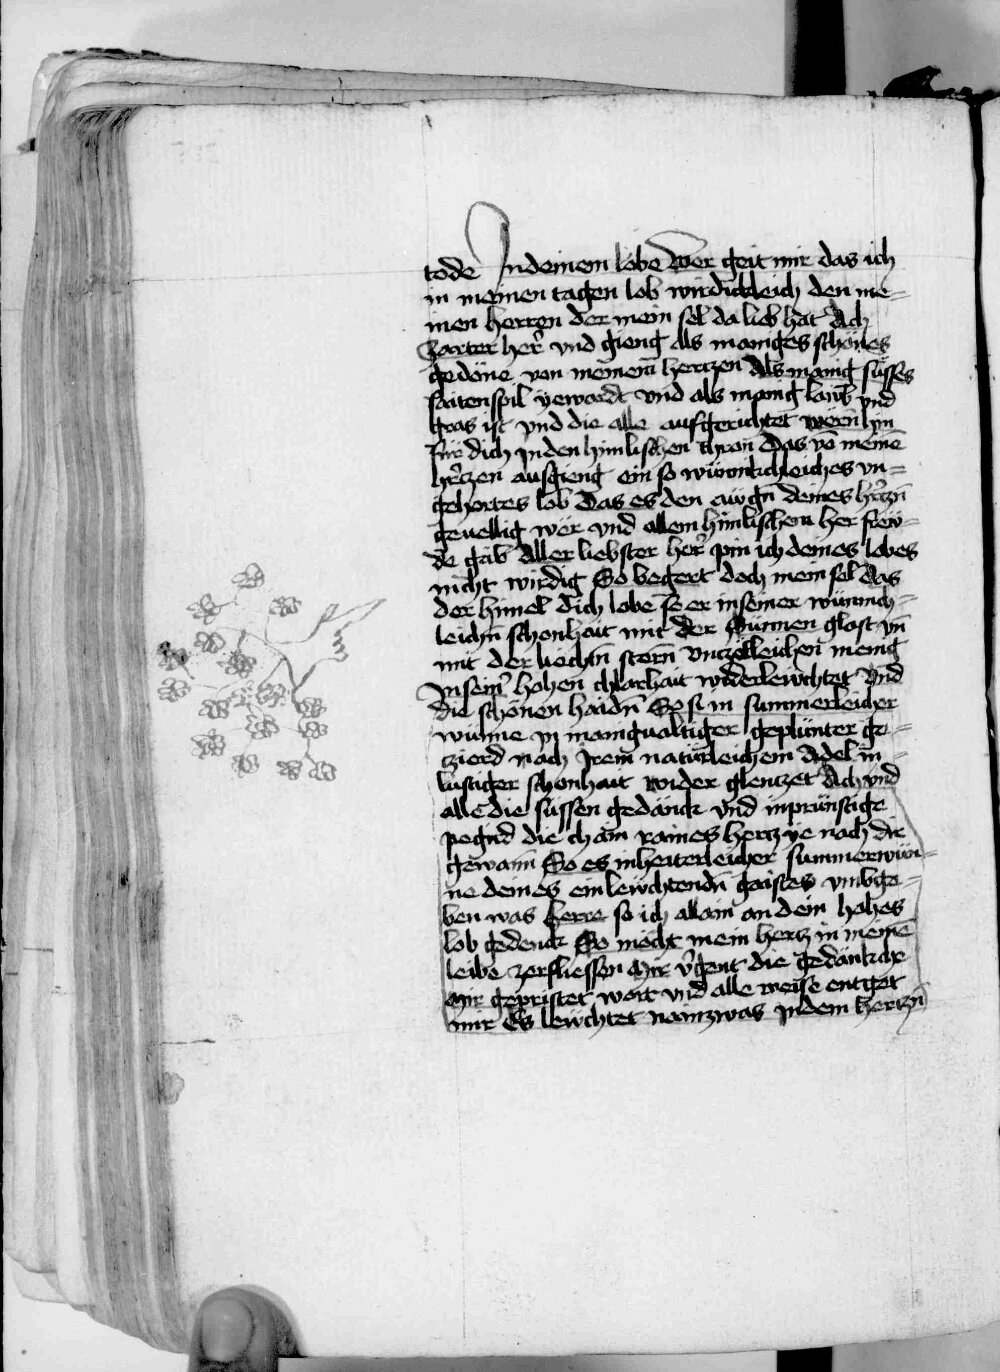 tode Indeinem lobe Wer geit mir das ich
in meinen tagen lob wirdichleich den me-
inen herren der mein sel da lieb hat Ach
zarter her vnd gieng als maniges schönes
gedöne von meinem hertzen Als manig süsses
saitenspil ye ward vnd als manig laub vnd
gras ist vnd die alle aufgerichtet wern hin
für dich in den himlischen thron Das vō meinē
hertzen ausgieng ein so wünnichleiches vn-
gehortes lob Das es den awgn deines hertzn
geuellig wër vnd allem himlischem her frew-
de gäb Aller liebster her pin ich deines lobes
nicht wirdig So begert doch mein sel das
der himel dich lobe so er in seiner wünnich-
leichn schonhait mit der Sunnen glast vn
mit der liechtn stern vnczelleichen menig
In sein hohen chlarhait widerlewchtet Vnd
die schönen haidn So si in summerleicher
wunne in manigualtiger geplünter ge-
zierd nach Irem natürleichem Adel in
lustiger schonhait wider glentzet Ach vnd
alle die süssen gedänck vnd inprünstige
pegird die chain raines hertz ye nach dir
gewann So es in heiterleicher summerwün-
ne deines einlewchtendn gaistes vmbge-
ben was Herre so ich allain an dein hohes
lob gedenck So möcht mein hertz in meinē
leibe zerfliessen Mir v̓gent die gedänckche
Mir gepristet wort vnd alle weise entget
mir Es lewchtet naizwas In dem hertzn